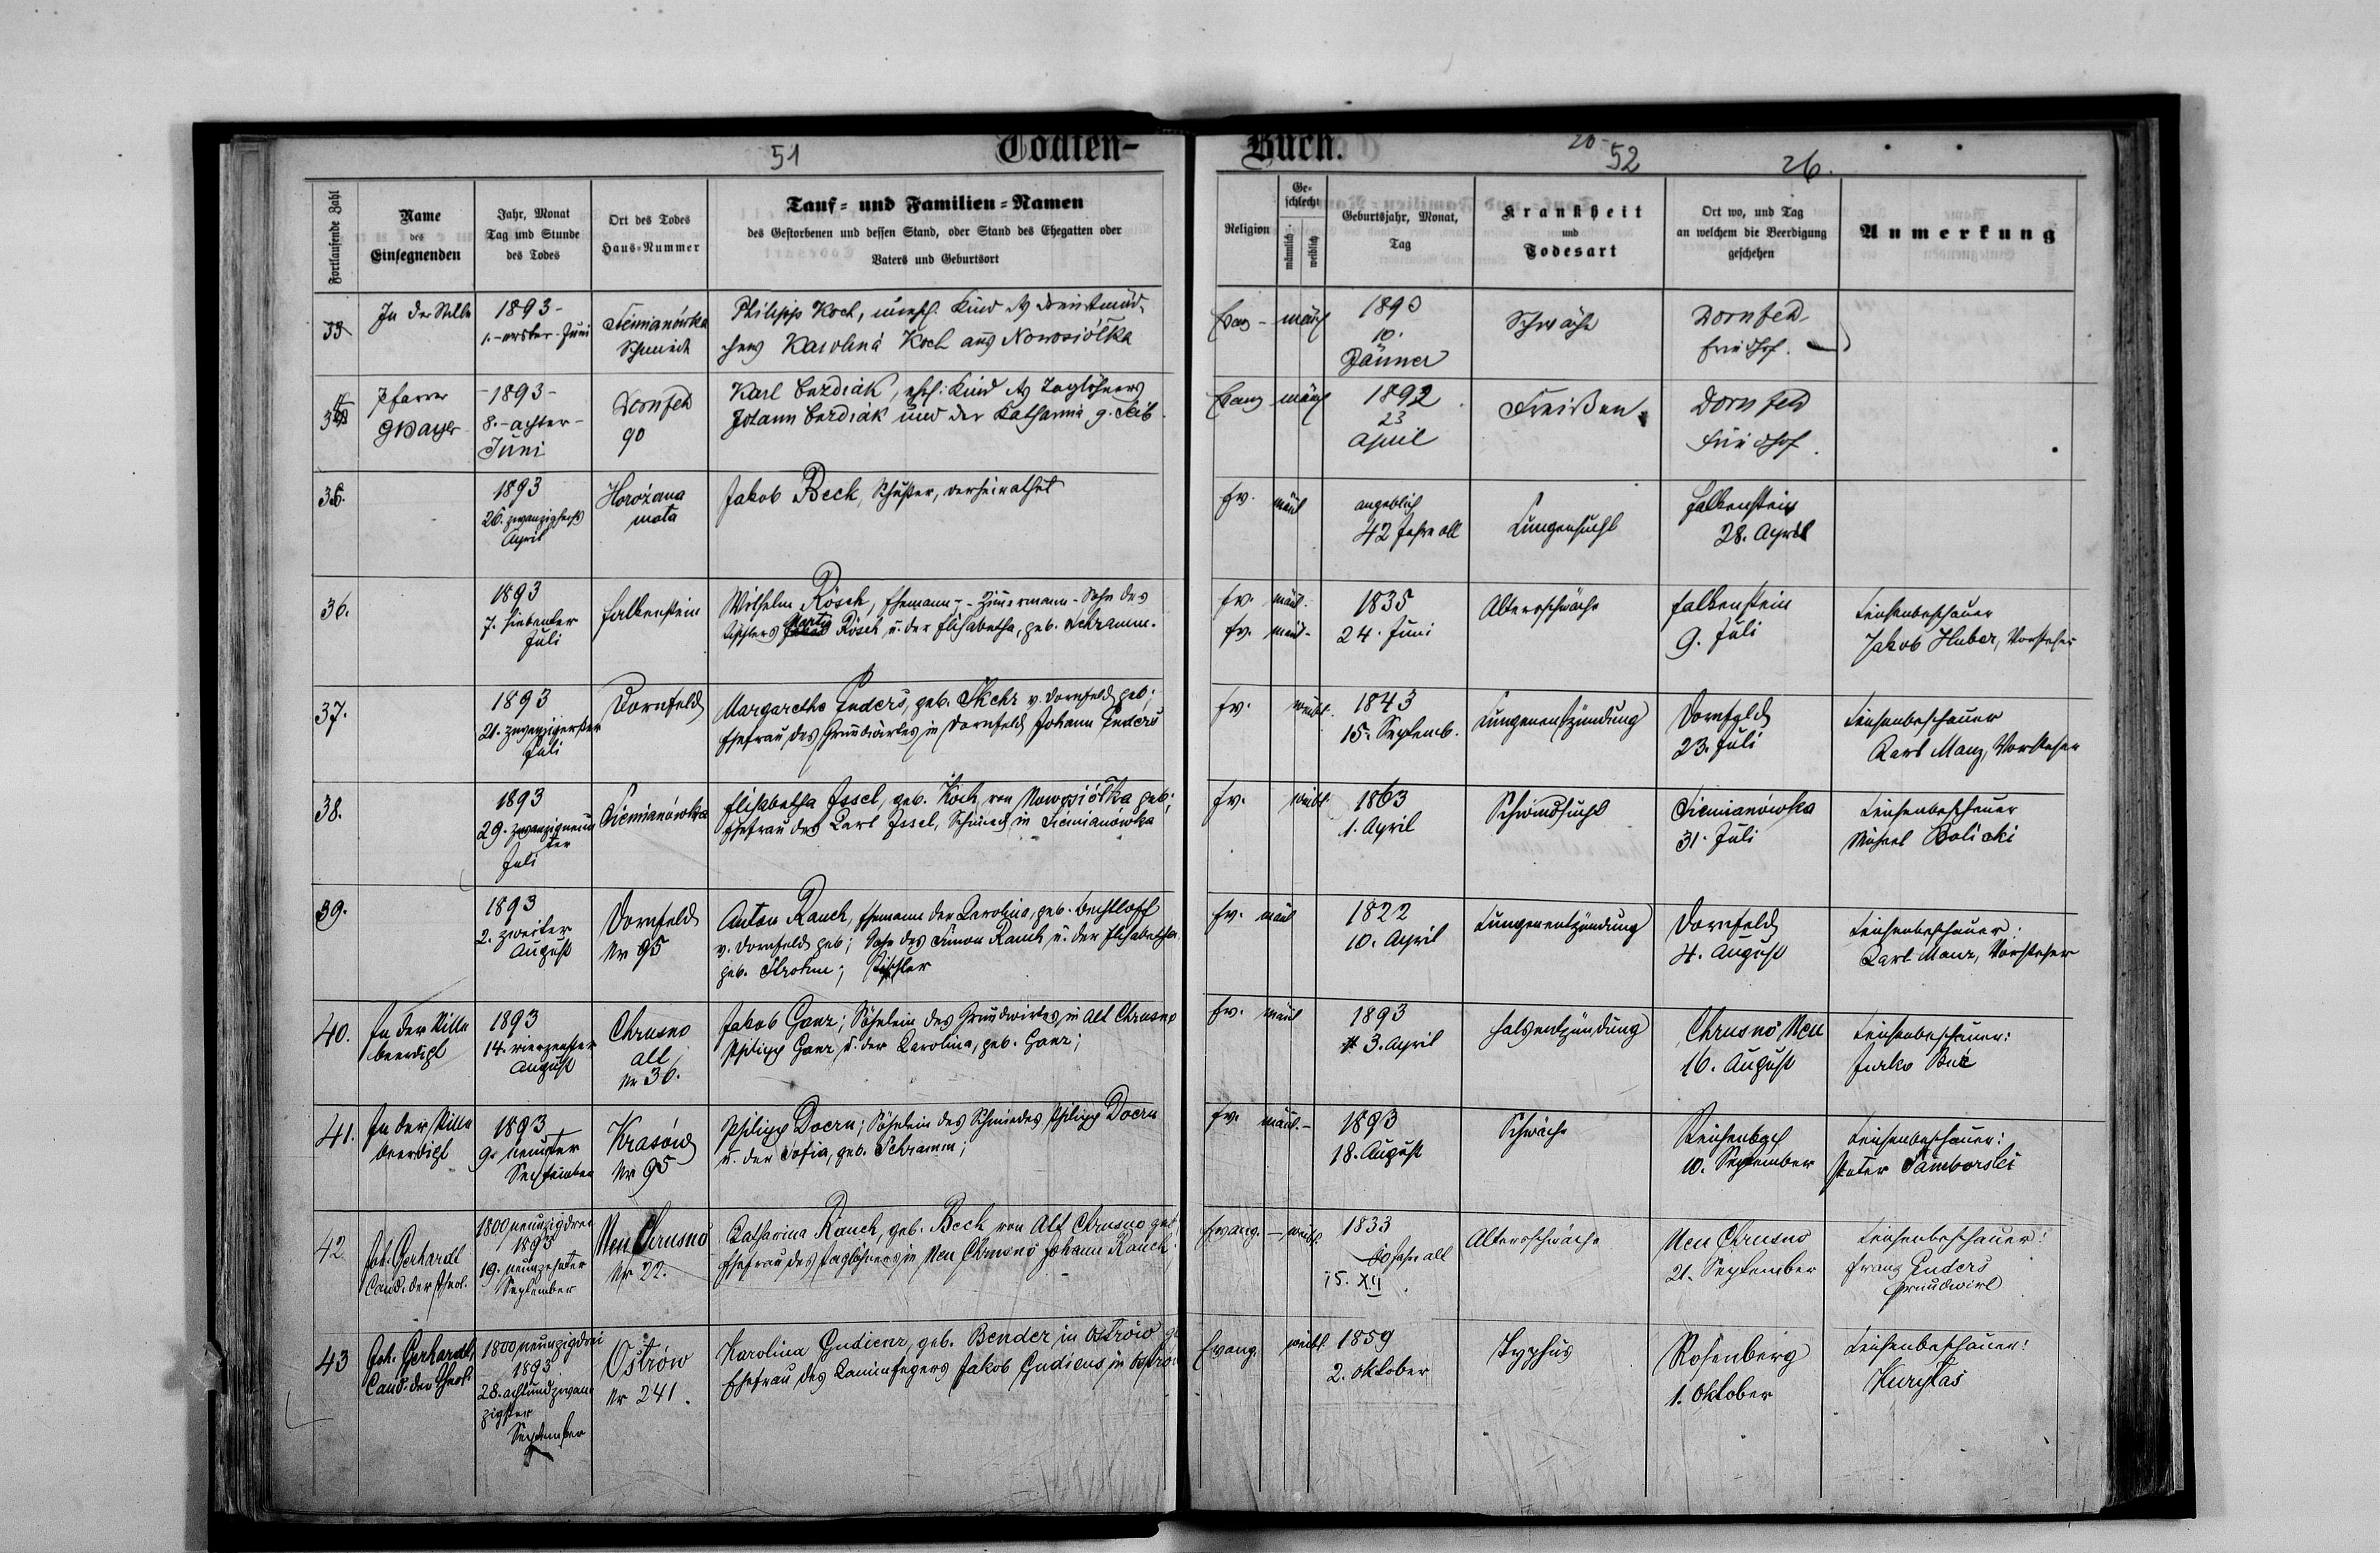 51
Todten-
Buch.
20-
52
26.
Fortlaufende Zahl
Name
des
Einsegnenden
Jahr, Monat
Tag und Stunde
des Todes
Ort des Todes
Haus-Nummer
Tauf- und Familien-Namen
des Gestorbenen und dessen Stand, oder Stand des Ehegatten oder
Vaters und Geburtsort
Religion
Ge-
schlecht
männlich
weiblich
Geburtsjahr, Monat,
Tag
Krankheit
und
Todesart
Ort wo, und Tag
an welchem die Beerdigung
geschehen
Anmerkung
33
In der Stille
1893-
1.-erster-Juni
Siemianówka
Schmiede
Philipp Koch, unehl. Kind des Dienstmäd-
chens Karolina Koch aus Nowosiólka
Evang - männl
1893
10.
Jänner
Schwäche
Dornfeld
Friedhof.
34
Pfarrer
-1893-
8.-achter-
Juni
Dornfeld
90
Karl Bezdiak, ehel. Kind des Taglöhners
Johann Bezdiak und der Katharina g.
Evang männl
1892
23
April
Freißen
Dornfeld
Friedhof.
35.
1893
26. zwanzigsechs
April
Horożana
mała
Jakob Beck, Schuster, verheirathet
Ev. männl
angeblich
42 Jahre alt
Lungensucht
Falkenstein
28. April
36.
1893
7. siebenter
Juli
Falkenstein
Wilhelm Rösch, Ehemann - Zimmermann - Sohn des
Tischlers Martin Rösch u. der Elisabetha, geb. Schramm.
Ev. männl.
Ev. männl.
1835
24. Juni
Altersschwäche
Falkenstein
9. Juli
Leichenbeschauer
Jakob Huber, Vorsteher
37.
1893
21. zwanzigerster
Juli
Dornfeld
Margaretha Enders, geb. v. Dornfeld geb;
Ehefrau des Grundwirtes in Dornfeld Johann Enders
Ev. weibl.
1843
15. Septemb.
Lungenentzündung
Dornfeld
23. Juli
Leichenbeschauer
Karl Manz, Vorsteher
38.
1893
29. zwanzigneun
ter
Juli
Siemianówka
Elisabetha Issel, geb. Koch, von Nowosiółka geb;
Ehefrau des Karl Issel, Schmied in Siemianówka
Ev. weibl.
1863
1. April
Schwindsucht
Siemianówka
31. Juli
Leichenbeschauer
Michael Bolicki
39.
1893
2. zweiter
August
Dornfeld
Nr 95
Anton Rauch, Ehemann der Karolina, geb. Bechtloff
v. Dornfeld geb; Sohn des Simon Rauch u. der Elisabetha
geb. Strohm; Tischler
Ev. männl
1822
10. April
Lungenentzündung
Dornfeld
4. August
Leichenbeschauer:
Karl Manz, Vorsteher
40.
In der Stille
beerdigt
1893
14. vierzehnter
August
Chrusno
alt
Nr 36.
Jakob Ganz; Söhnlein des Grundwirtes in Alt Chrusno
Philipp Ganz u. der Karolina, geb. Ganz;
Ev. männl
1893
3. April
Halsentzündung
Chrusno Neu
16. August
Leichenbeschauer:
41.
In der Stille
beerdigt
1893
9. neunter
September
Krasów
Nr 95
Philipp Doern; Söhnlein des Schmiedes Philipp Doern
u. der Sofia, geb. Schramm;
Ev. männl.-
1893
18. August
Schwäche
Reichenbach
10. September
Leichenbeschauer:
Peter Samborski
42.
Joh. Gerhardt
Cand. der Theol.
1800neunzigdrei
1893
19. neunzehnter
September
Neu Chrusno
Nr 22.
Katharina Rauch, geb. Beck von Alt Chrusno geb
Ehefrau des Taglöhners in Neu Chrusno Johann Rauch.
Evang. - weibl.
1833
60 Jahre alt
15. XII.
Altersschwäche
Neu Chrusno
21. September
Leichenbeschauer:
Franz Enders
Grundwirt
43
Joh. Gerhardt,
Cand. der Theol.
1800neunzigdrei
1893
28. achtundzwan
zigster
September
Ostrów
Nr 241.
Karolina Gudienz, geb. Bender in Ostrów
Ehefrau des Kaminfegers Jakob Gudiens in Ostró
Evang. weibl.
1859
2. Oktober
Typhus
Rosenberg
1. Oktober
Leichenbeschauer:
Kurylas